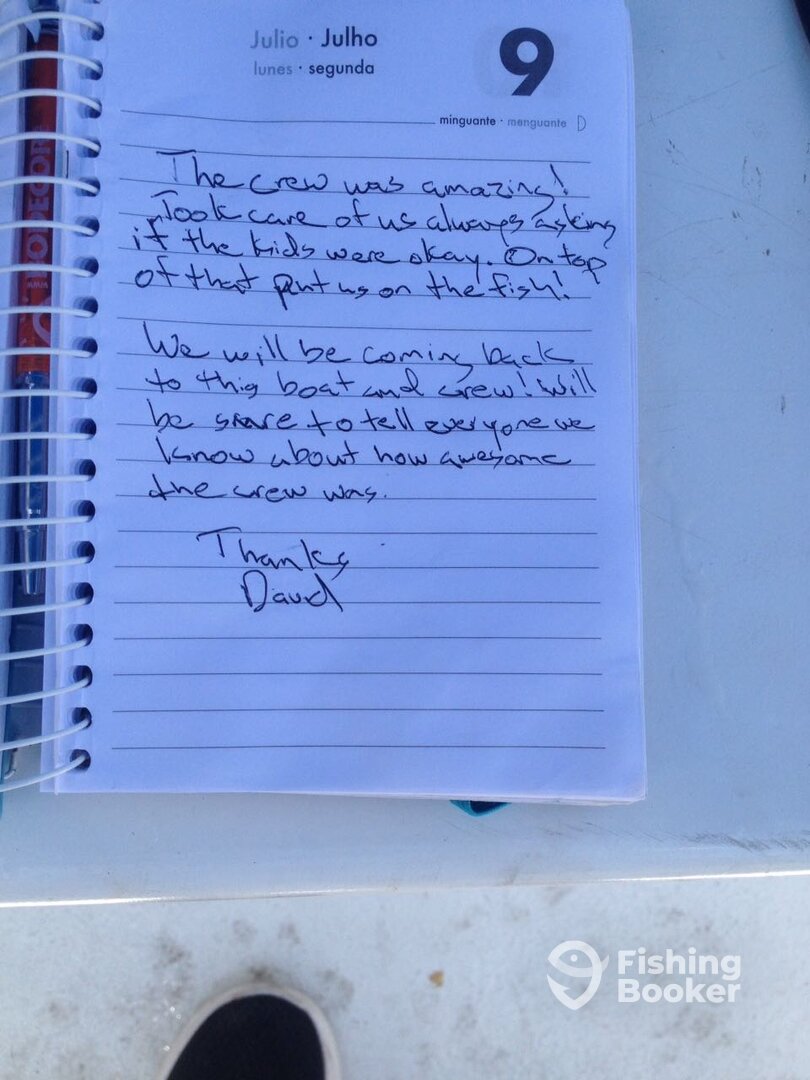 Julio · Julho
lunes · segunda
9
minguante · menguante
The crew was amazing!
Took care of us always asking
if the kids were okay. On top
of that put us on the fish!
We will be coming back
to this boat and crew! Will
be sure to tell everyone we
know about how awesome
the crew was.
Thanks
David
LODECOM
www
Fishing
Booker